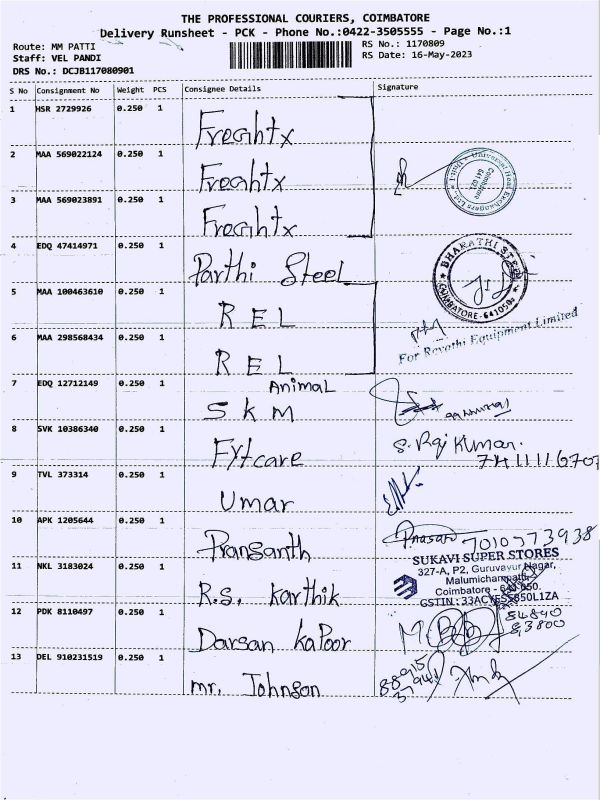 THE PROFESSIONAL COURIERS, COIMBATORE
Delivery Runsheet - PCK - Phone No.:0422-3505555 - Page No.:1
Route: MM PATTI
Staff: VEL PANDI
DRS No.: DCJB117080901
RS No.: 1170809
RS Date: 16-May-2023
S No Consignment No Weight PCS Consignee Details Signature
1 HSR 2729926 0.250 1 Freghtx
2 MAA 569022124 0.250 1 Freghtx
3 MAA 569023891 0.250 1 Freghtx
4 EDQ 47414971 0.250 1 Parthi Steel
BHARATHI STEEL
COIMBATORE - 641050
5 MAA 100463610 0.250 1 REL
For Revathi Equipment Limited
6 MAA 298568434 0.250 1 REL
7 EDQ 12712149 0.250 1 SKM Animal
8 SVK 10386340 0.250 1 Fytcare S. Raj Kumar.
9 TVL 373314 0.250 1 Umar
10 APK 1205644 0.250 1 Pransanth 7010773938
SUKAVI SUPER STORES
327-A, P2, Guruvayur Nagar,
Malumichampatti,
Coimbatore - 641 050.
11 NKL 3183024 0.250 1 R.S. Karthik
12 PDK 8110497 0.250 1 Darsan Kapoor
13 DEL 910231519 0.250 1 mr. Johnson